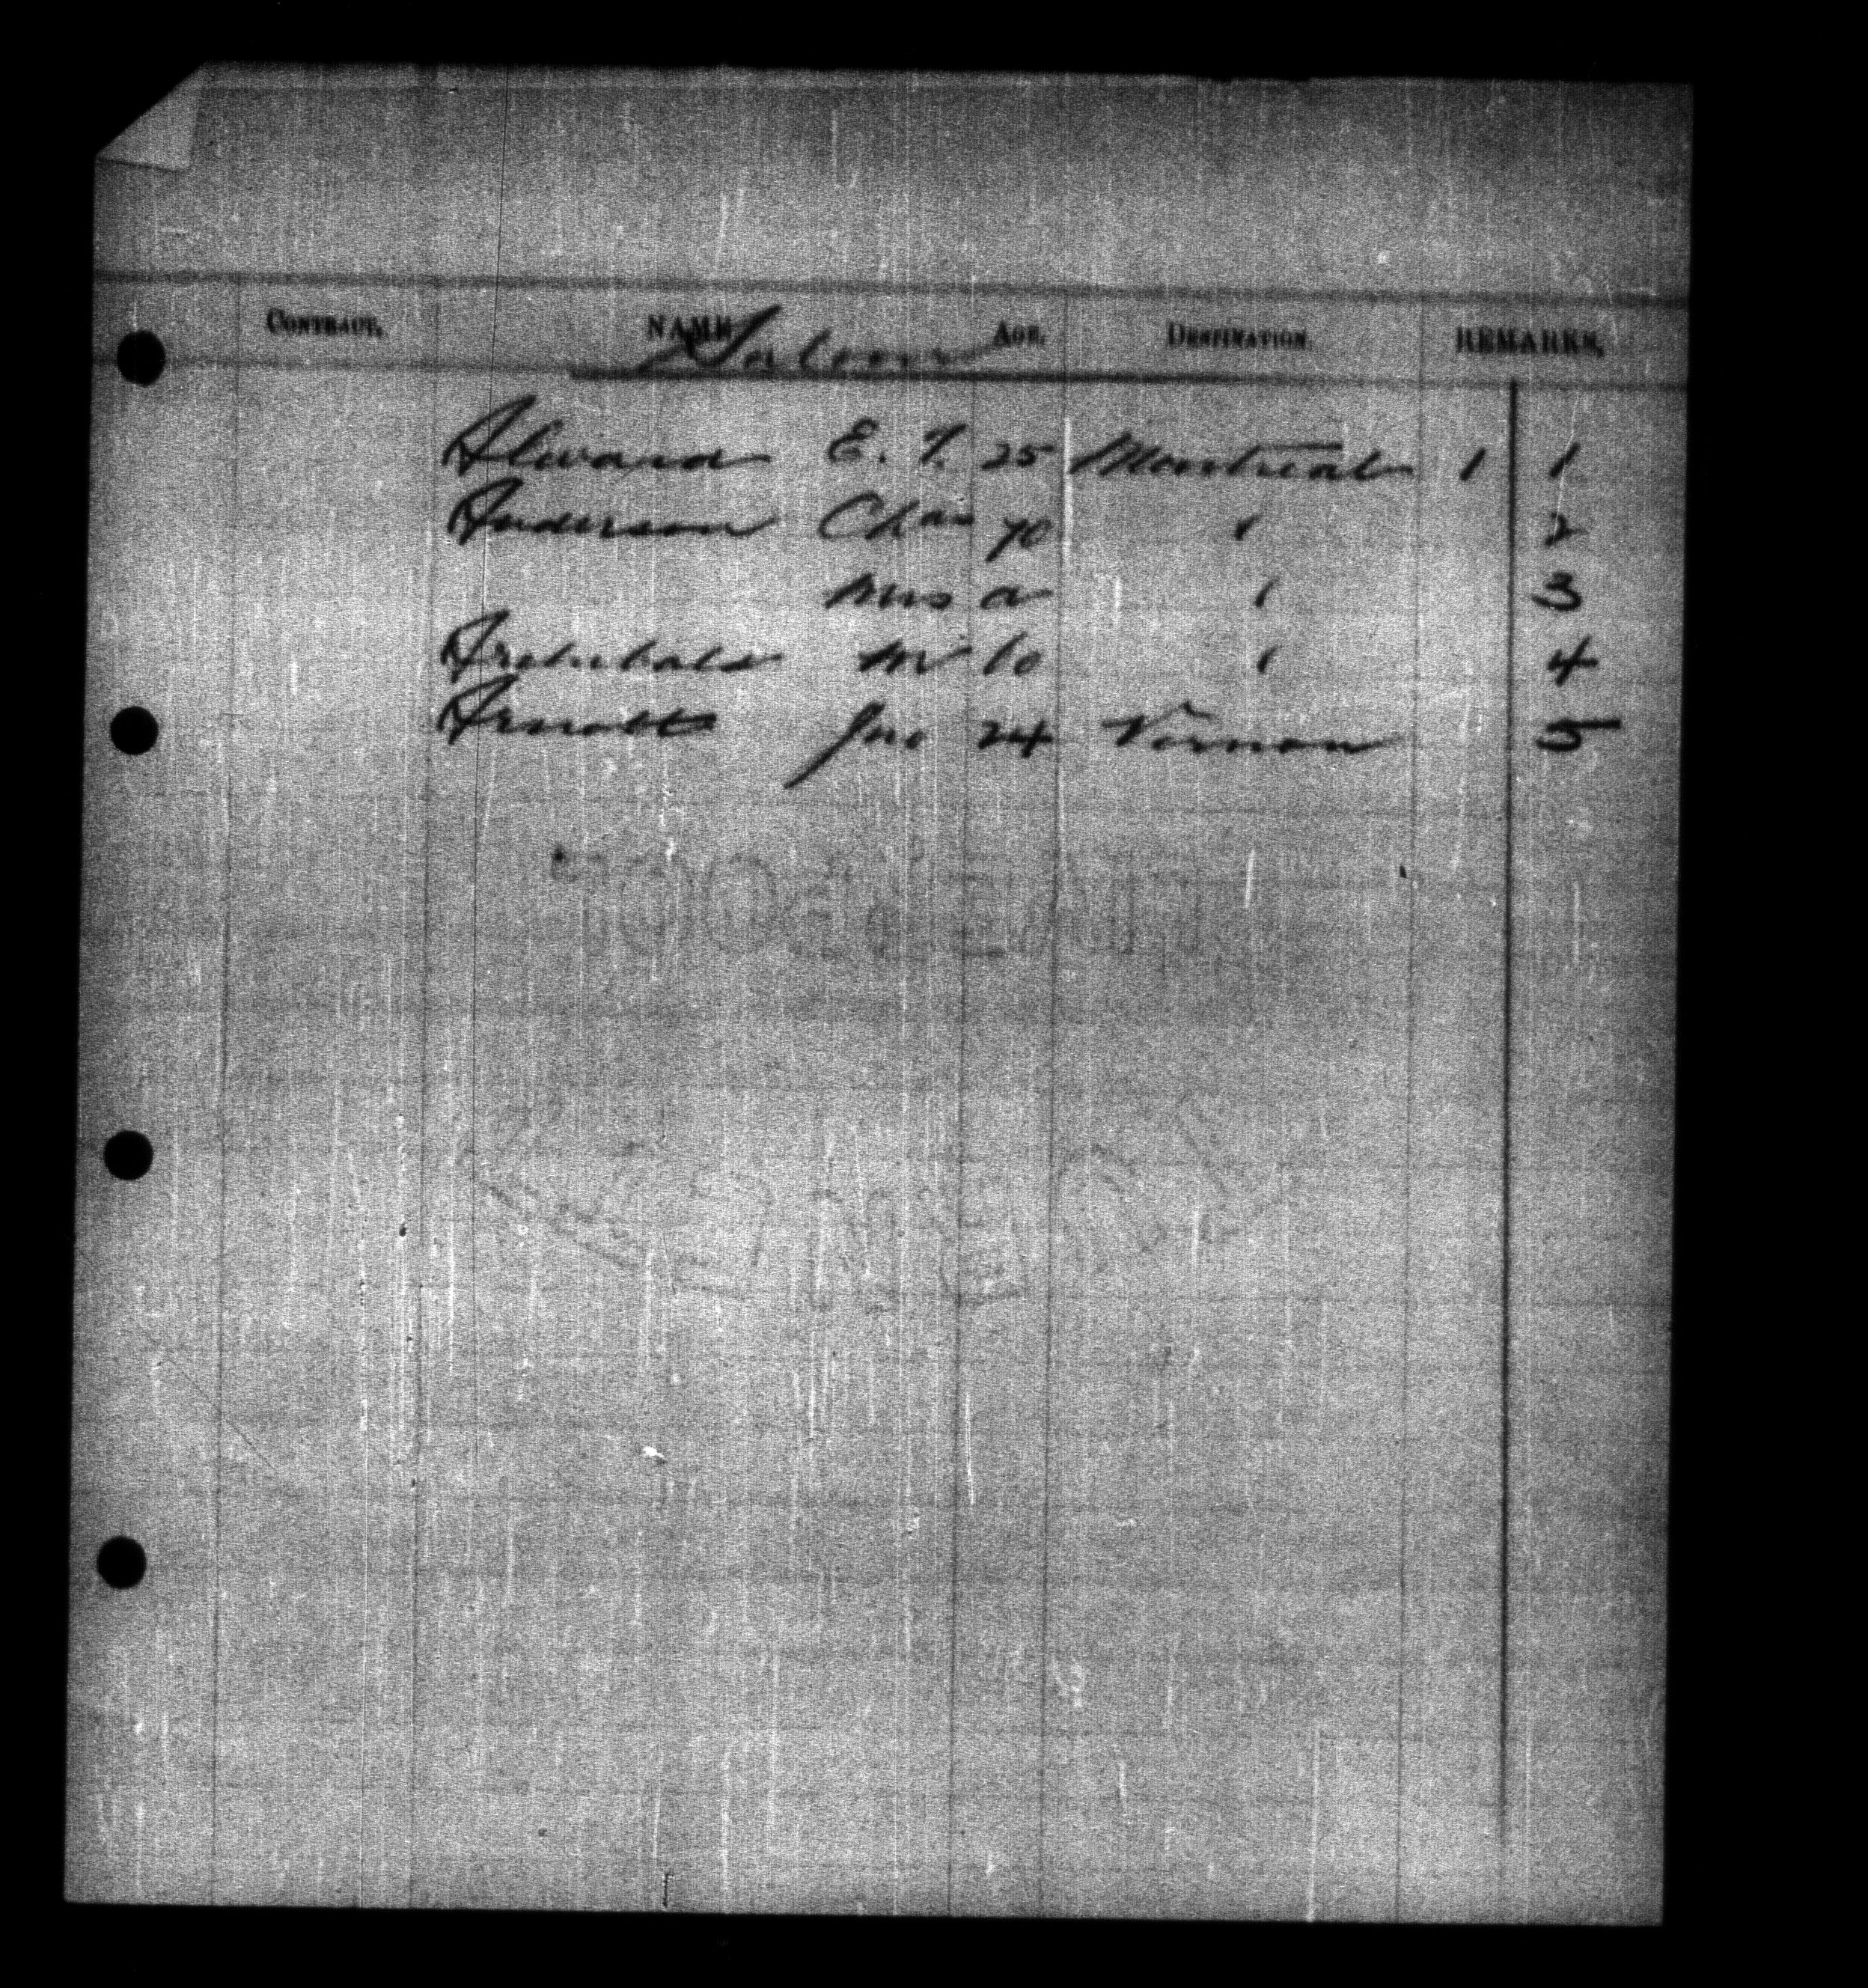 CONTRACT. NAME AGE. DESTINATION. REMARKS.
Saloon
Alward E. T. 25 Montreal 1 1
Anderson Chas 70 " 2
Mrs a " 3
Archibald M 60 " 4
Arnott Jno 24 Vernon 5